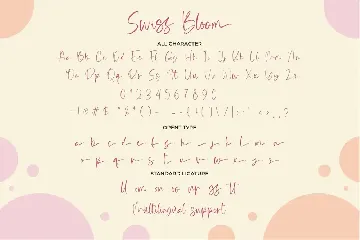 Swiss Bloom
ALL CHARACTER
Aa Bb Cc Dd Ee Ff Gg Hh Ii Jj Kk Ll Mm Nn
Oo Pp Qq Rr Ss Tt Uu Vv Ww Xx Yy Zz
0 1 2 3 4 5 6 7 8 9 0
OPENTYPE
a b c d e f g h i j k l m n
o p q r s t u v w x y z
STANDARD LIGATURE
Multilingual support